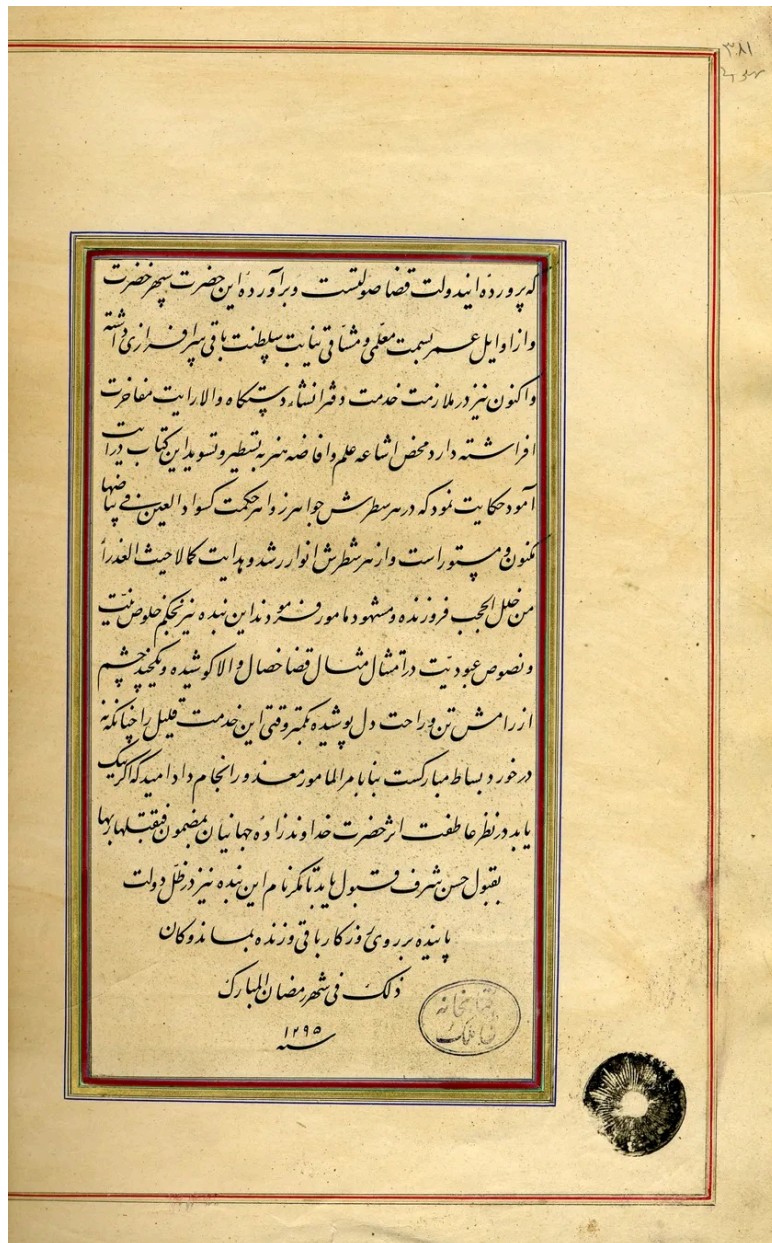 ۳۸۱
که پرورده ایندولت قضا صولتست و برآورده این حضرت سپهر خضرت
و از اوایل عمر بسمت معلمی و مشاقی نیابت سلطنت باقی سرافرازی داشته
و اکنون نیز در ملازمت خدمت دفتر انشاء دستگاه والا رایت مفاخرت
افراشته دارد محض اشاعه علم و افاضه هنر به تسطیر و تسوید این کتاب درایت
آمود حکایت نمود که در هر سطرش جواهر زواهر حکمت کسواد العین فی بیاضها
مکنون و مستور است و از هر شطرش انوار رشد و هدایت کمالاحیث العذراً
من خلل الحجب فروزنده و مشهود مامور فرمودند این بنده نیز بحکم خلوص نیت
و نصوص عبودیت در امتثال مثال قضا خصال والا کوشیده و یکچند چشم
از رامش تن و راحت دل پوشیده بکمتر وقتی این خدمت قلیل را چنانکه نه
در خورد بساط مبارکست بنابامر المامور معذور انجام داد امید که اگر نیک
یابد در نظر عاطفت اثر حضرت خداوندزاده جهانیان بمضمون فتقبلها ربها
بقبول حسن شرف قبول یابد تا مگر نام این بنده نیز در ظل دولت
پاینده بر روی روزکار باقی و زنده بماند و کان
ذلک فی شهر رمضان المبارک
سنه ۱۲۹۵
کتابخانه
ملک